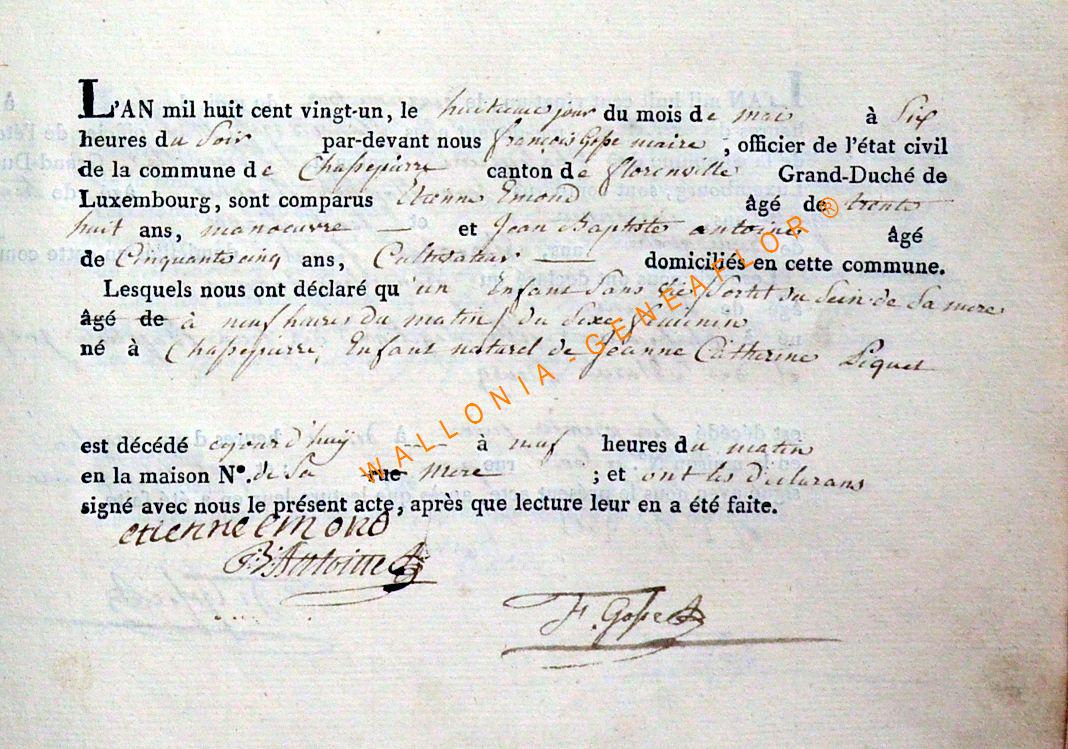 L'AN mil huit cent vingt-un, le huitieme jour du mois de mai à Six
heures du Soir par-devant nous françois Gosse maire, officier de l'état civil
de la commune de Chassepierre canton de florenville Grand-Duché de
Luxembourg, sont comparus Etienne Emond âgé de trente
huit ans, manoeuvre — et Jean Baptiste antoine âgé
de Cinquantecinq ans, Cultivateur — domiciliés en cette commune.
Lesquels nous ont déclaré qu'un Enfant Sans vie Sortit du Sein de Sa mere
âgé de à neuf heures du matin, du Sexe feminin
né à Chassepierre, Enfant naturel de Jeanne Catherine Piquet
est décédé cejourd'huy ---- à neuf heures du matin
en la maison N°. de Sa rue mere ; et ont les déclarans
signé avec nous le présent acte, après que lecture leur en a été faite.
etienne emond
F. Gosse
WALLONIA - GENEAFLOR ®